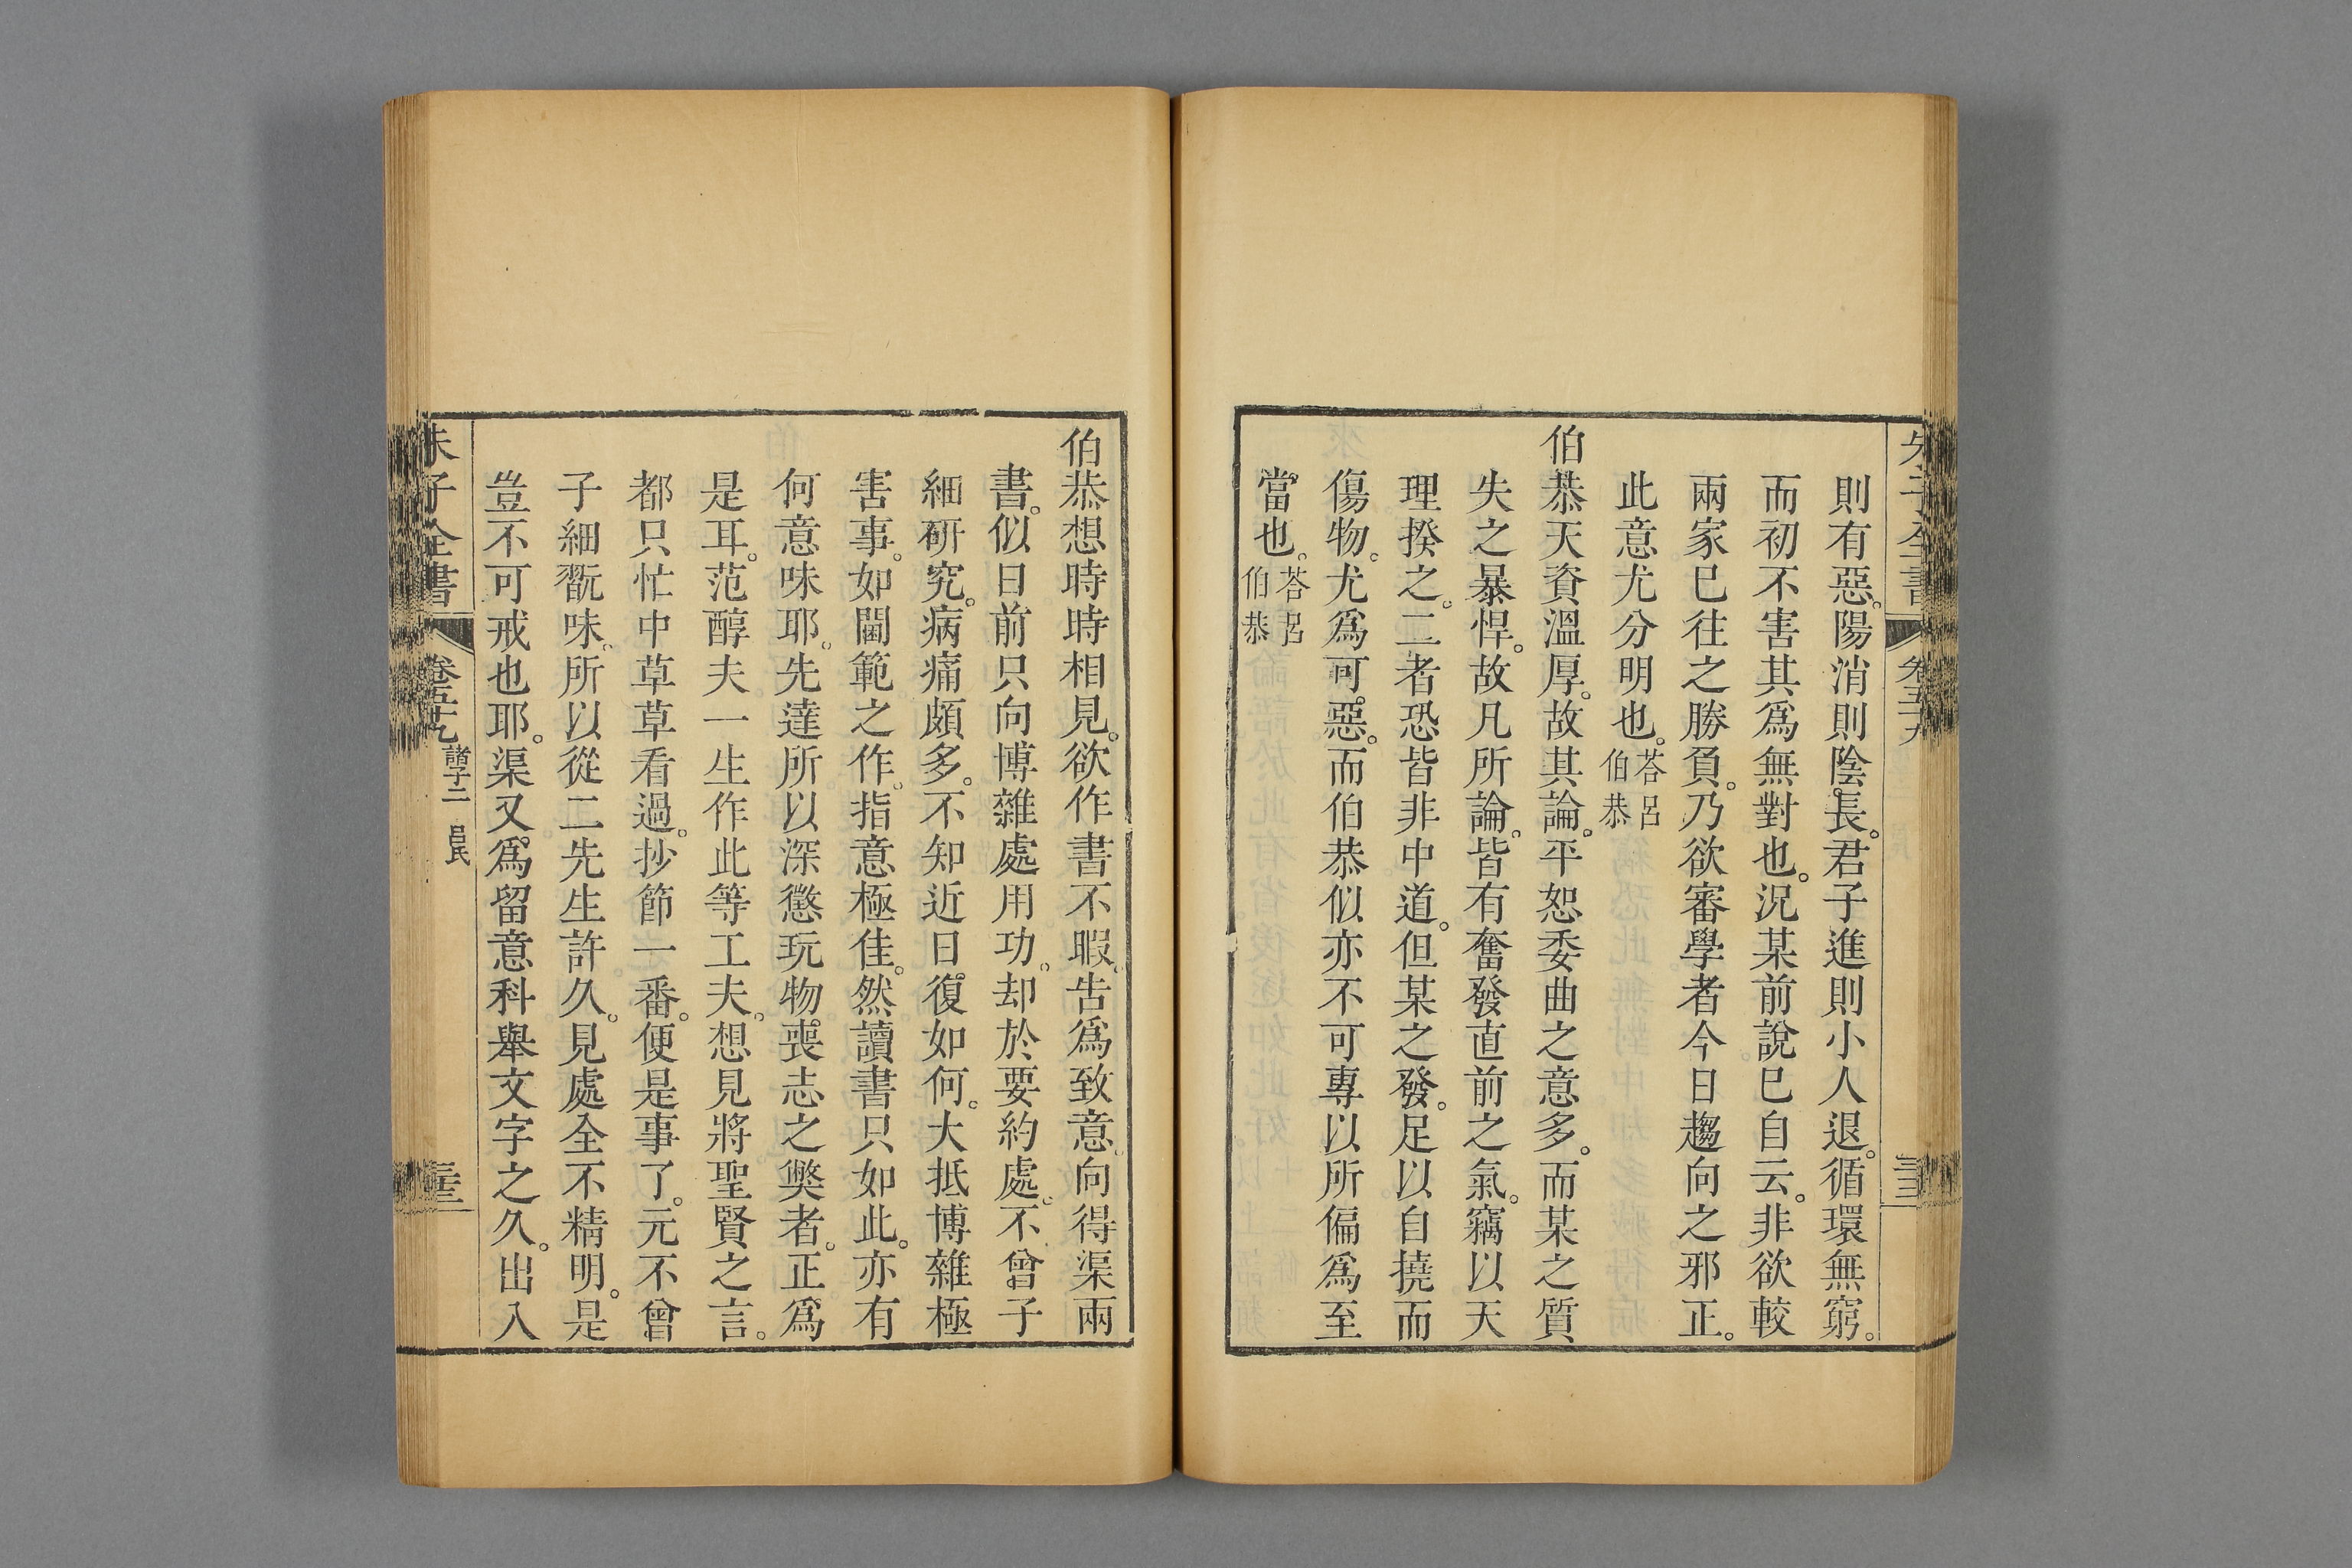 則有惡。陽消則陰長。君子進則小人退。循環無窮。
而初不害其爲無對也。況某前說已自云。非欲較
兩家已往之勝負。乃欲審學者今日趨向之邪正。
此意尤分明也。荅呂伯恭
伯恭天資溫厚。故其論。平恕委曲之意多。而某之質、
失之暴悍。故凡所論。皆有奮發直前之氣。竊以天
理揆之。二者恐皆非中道。但某之發。足以自撓而
傷物。尤爲可惡。而伯恭似亦不可專以所偏爲至
當也。荅呂伯恭
伯恭想時時相見。欲作書不暇。告爲致意。向得渠兩
書。似日前只向博雜處用功。却於要約處。不曾子
細硏究。病痛頗多。不知近日。復如何。大抵博雜極
害事。如閫範之作。指意極佳。然讀書只如此。亦有
何意味耶。先達所以深懲玩物。喪志之獘者。正爲
是耳。范醇夫一生作此等工夫。想見將聖賢之言。
都只忙中草草看過。抄節一番。便是事了。元不曾
子細翫味。所以從二先生許久。見處全不精明。是
豈不可戒也耶。渠又爲留意科舉文字之久。出入
朱子全書
諸子二
呂氏